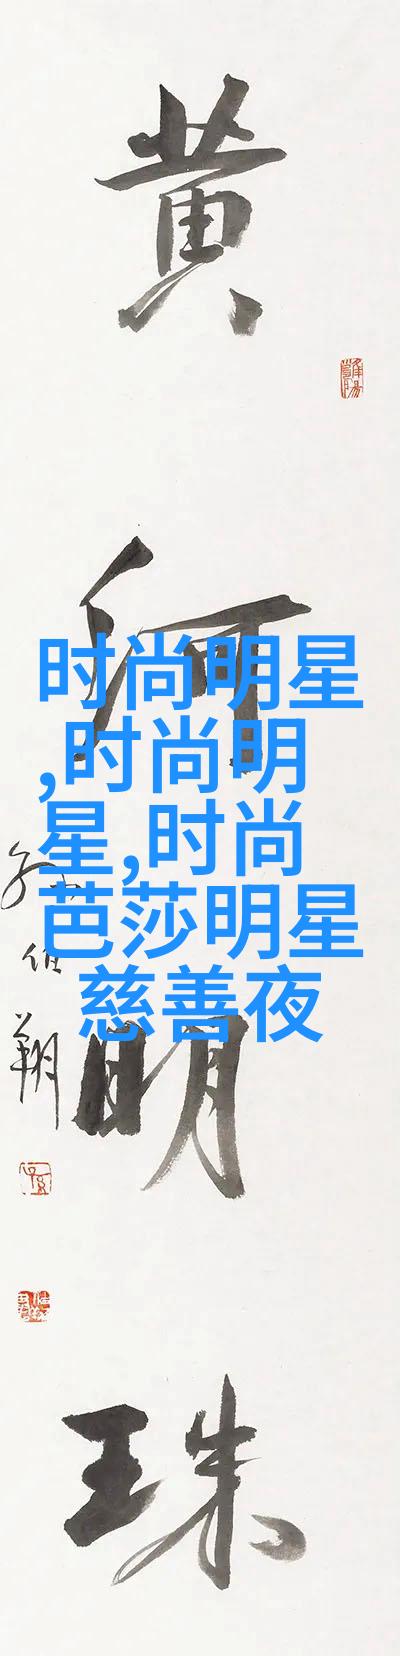 黄
河
明
珠
时尚明星
,时尚明
星,时尚
芭莎明星
慈善夜